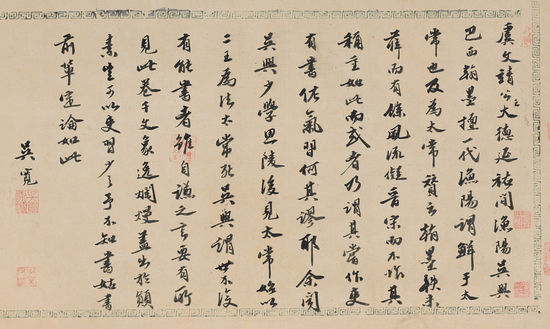 虞文靖公云大德延祐間漁陽吳興
巴西翰墨擅一代漁陽謂鮮于太
常也及為太常贊云翰墨軼米
薛而有餘風流擬晉宋而不怍其
稱重如此而或者乃謂其嘗作吏
有書佐氣習何其謬耶余聞
吳興少學思陵後見太常始以
二王為法太常死吳興謂世不復
有能書者雖自謙之言要有所
見此卷千文豪逸爛熳蓋出於顛
素豈可以吏習少之予不知書姑書
前輩定論如此
吳寬